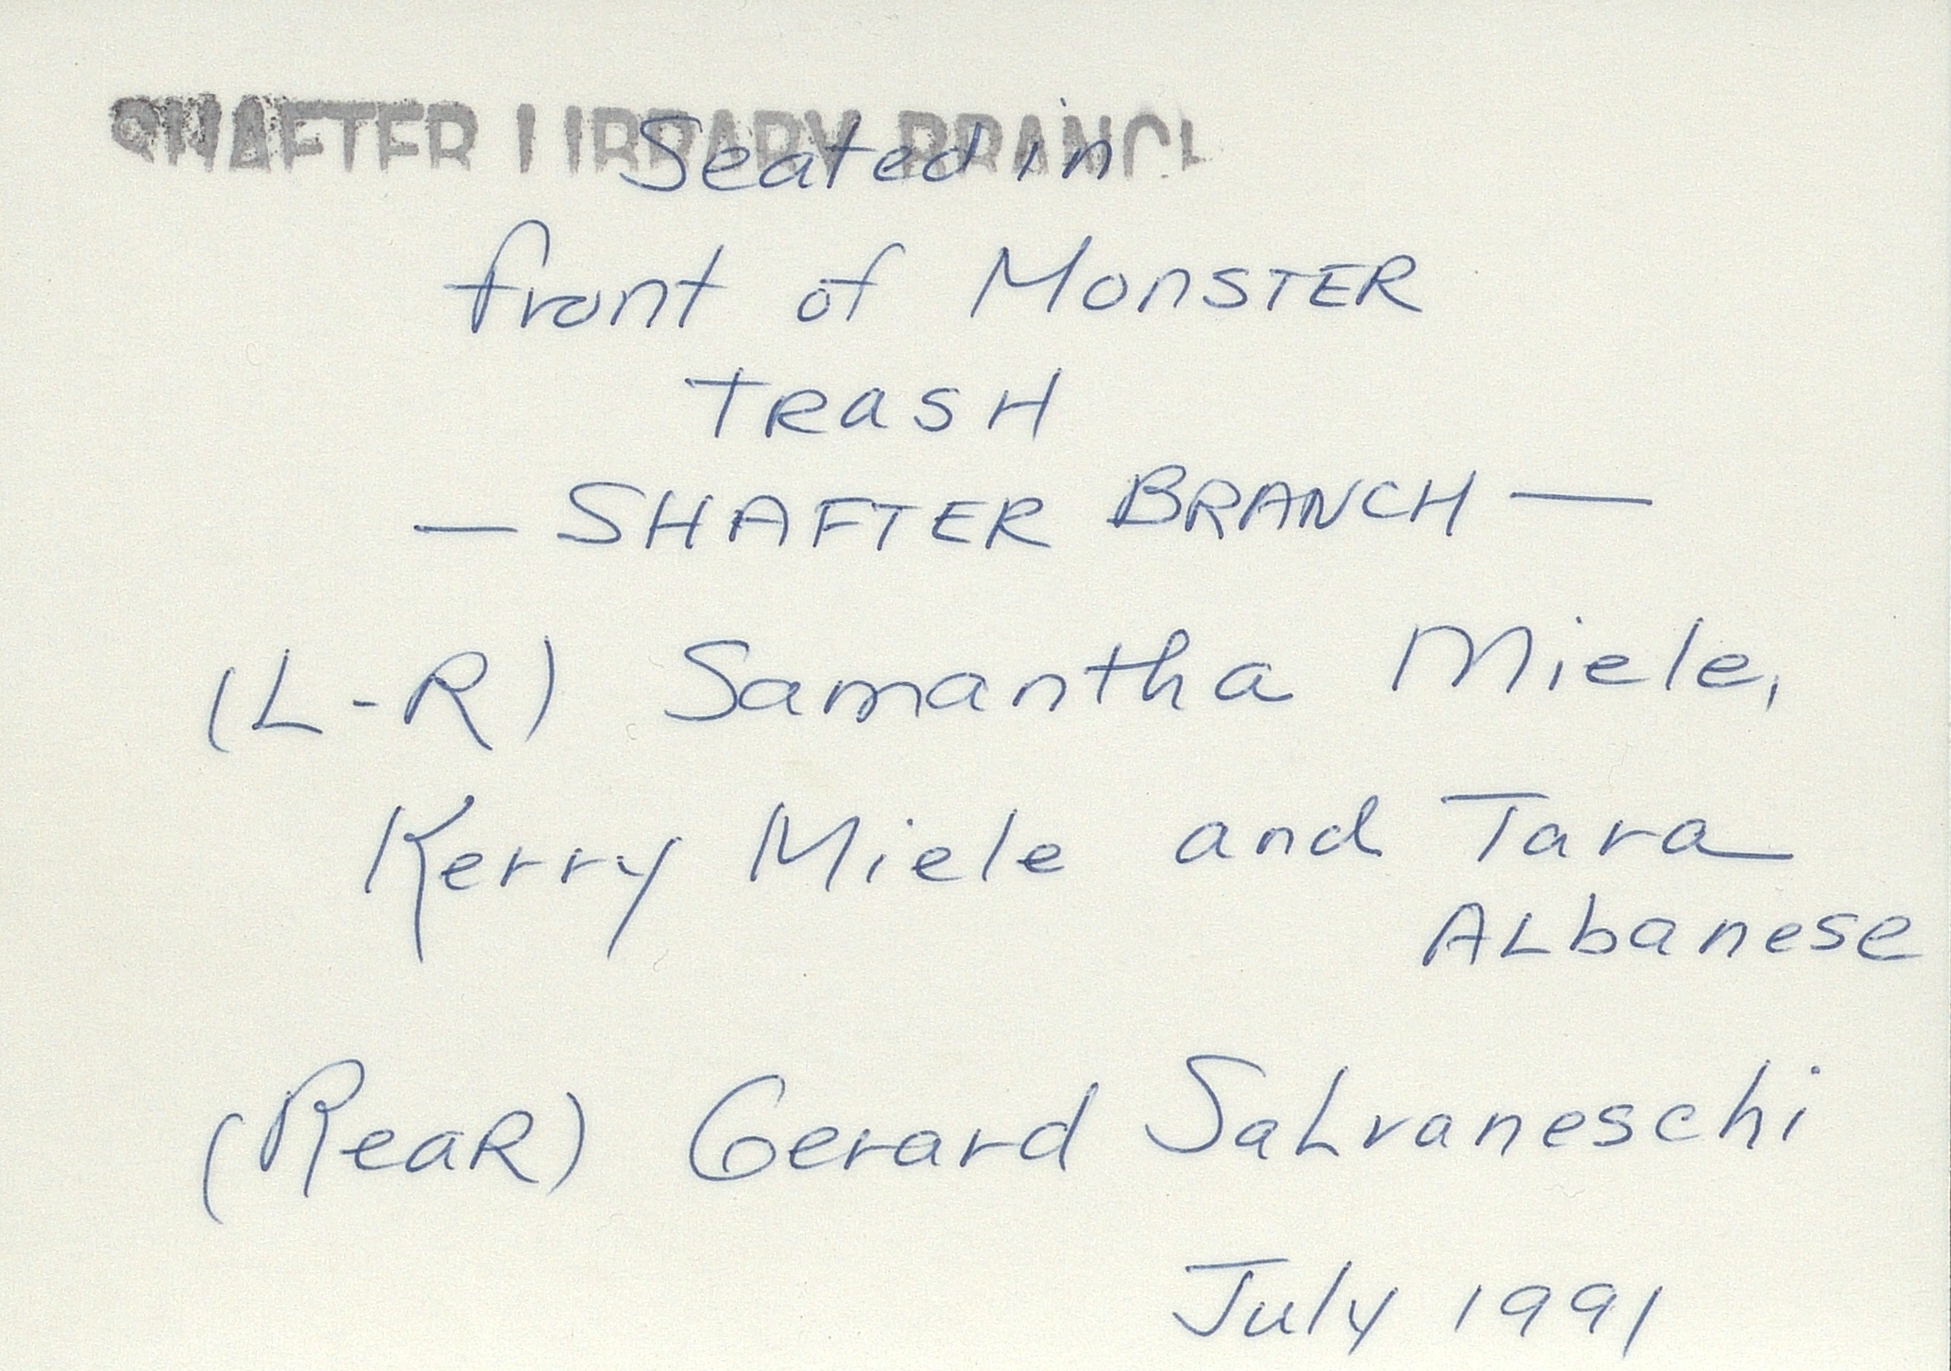 SHAFTER LIBRARY BRANCH
Seated in
front of MonSTER
TRaSH
— SHAFTER BRANCH —
(L-R) Samantha Miele,
Kerry Miele and Tara
ALbanese
(ReaR) Gerard SaLvaneschi
July 1991